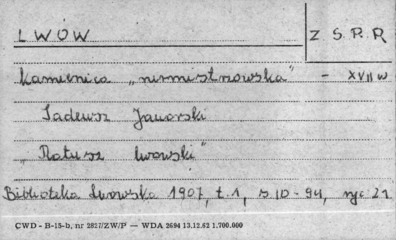 LWÓW
Z S R R
Kamienica „nirmistrzowska" - XVII w
Tadeusz Jaworski
„Ratusz lwowski"
Biblioteka Lwowska 1907, t.1, s.10-94, ryc. 21
CWD - B-15-b, nr 2827/ZW/P — WDA 2694 13.12.62 1.700.000